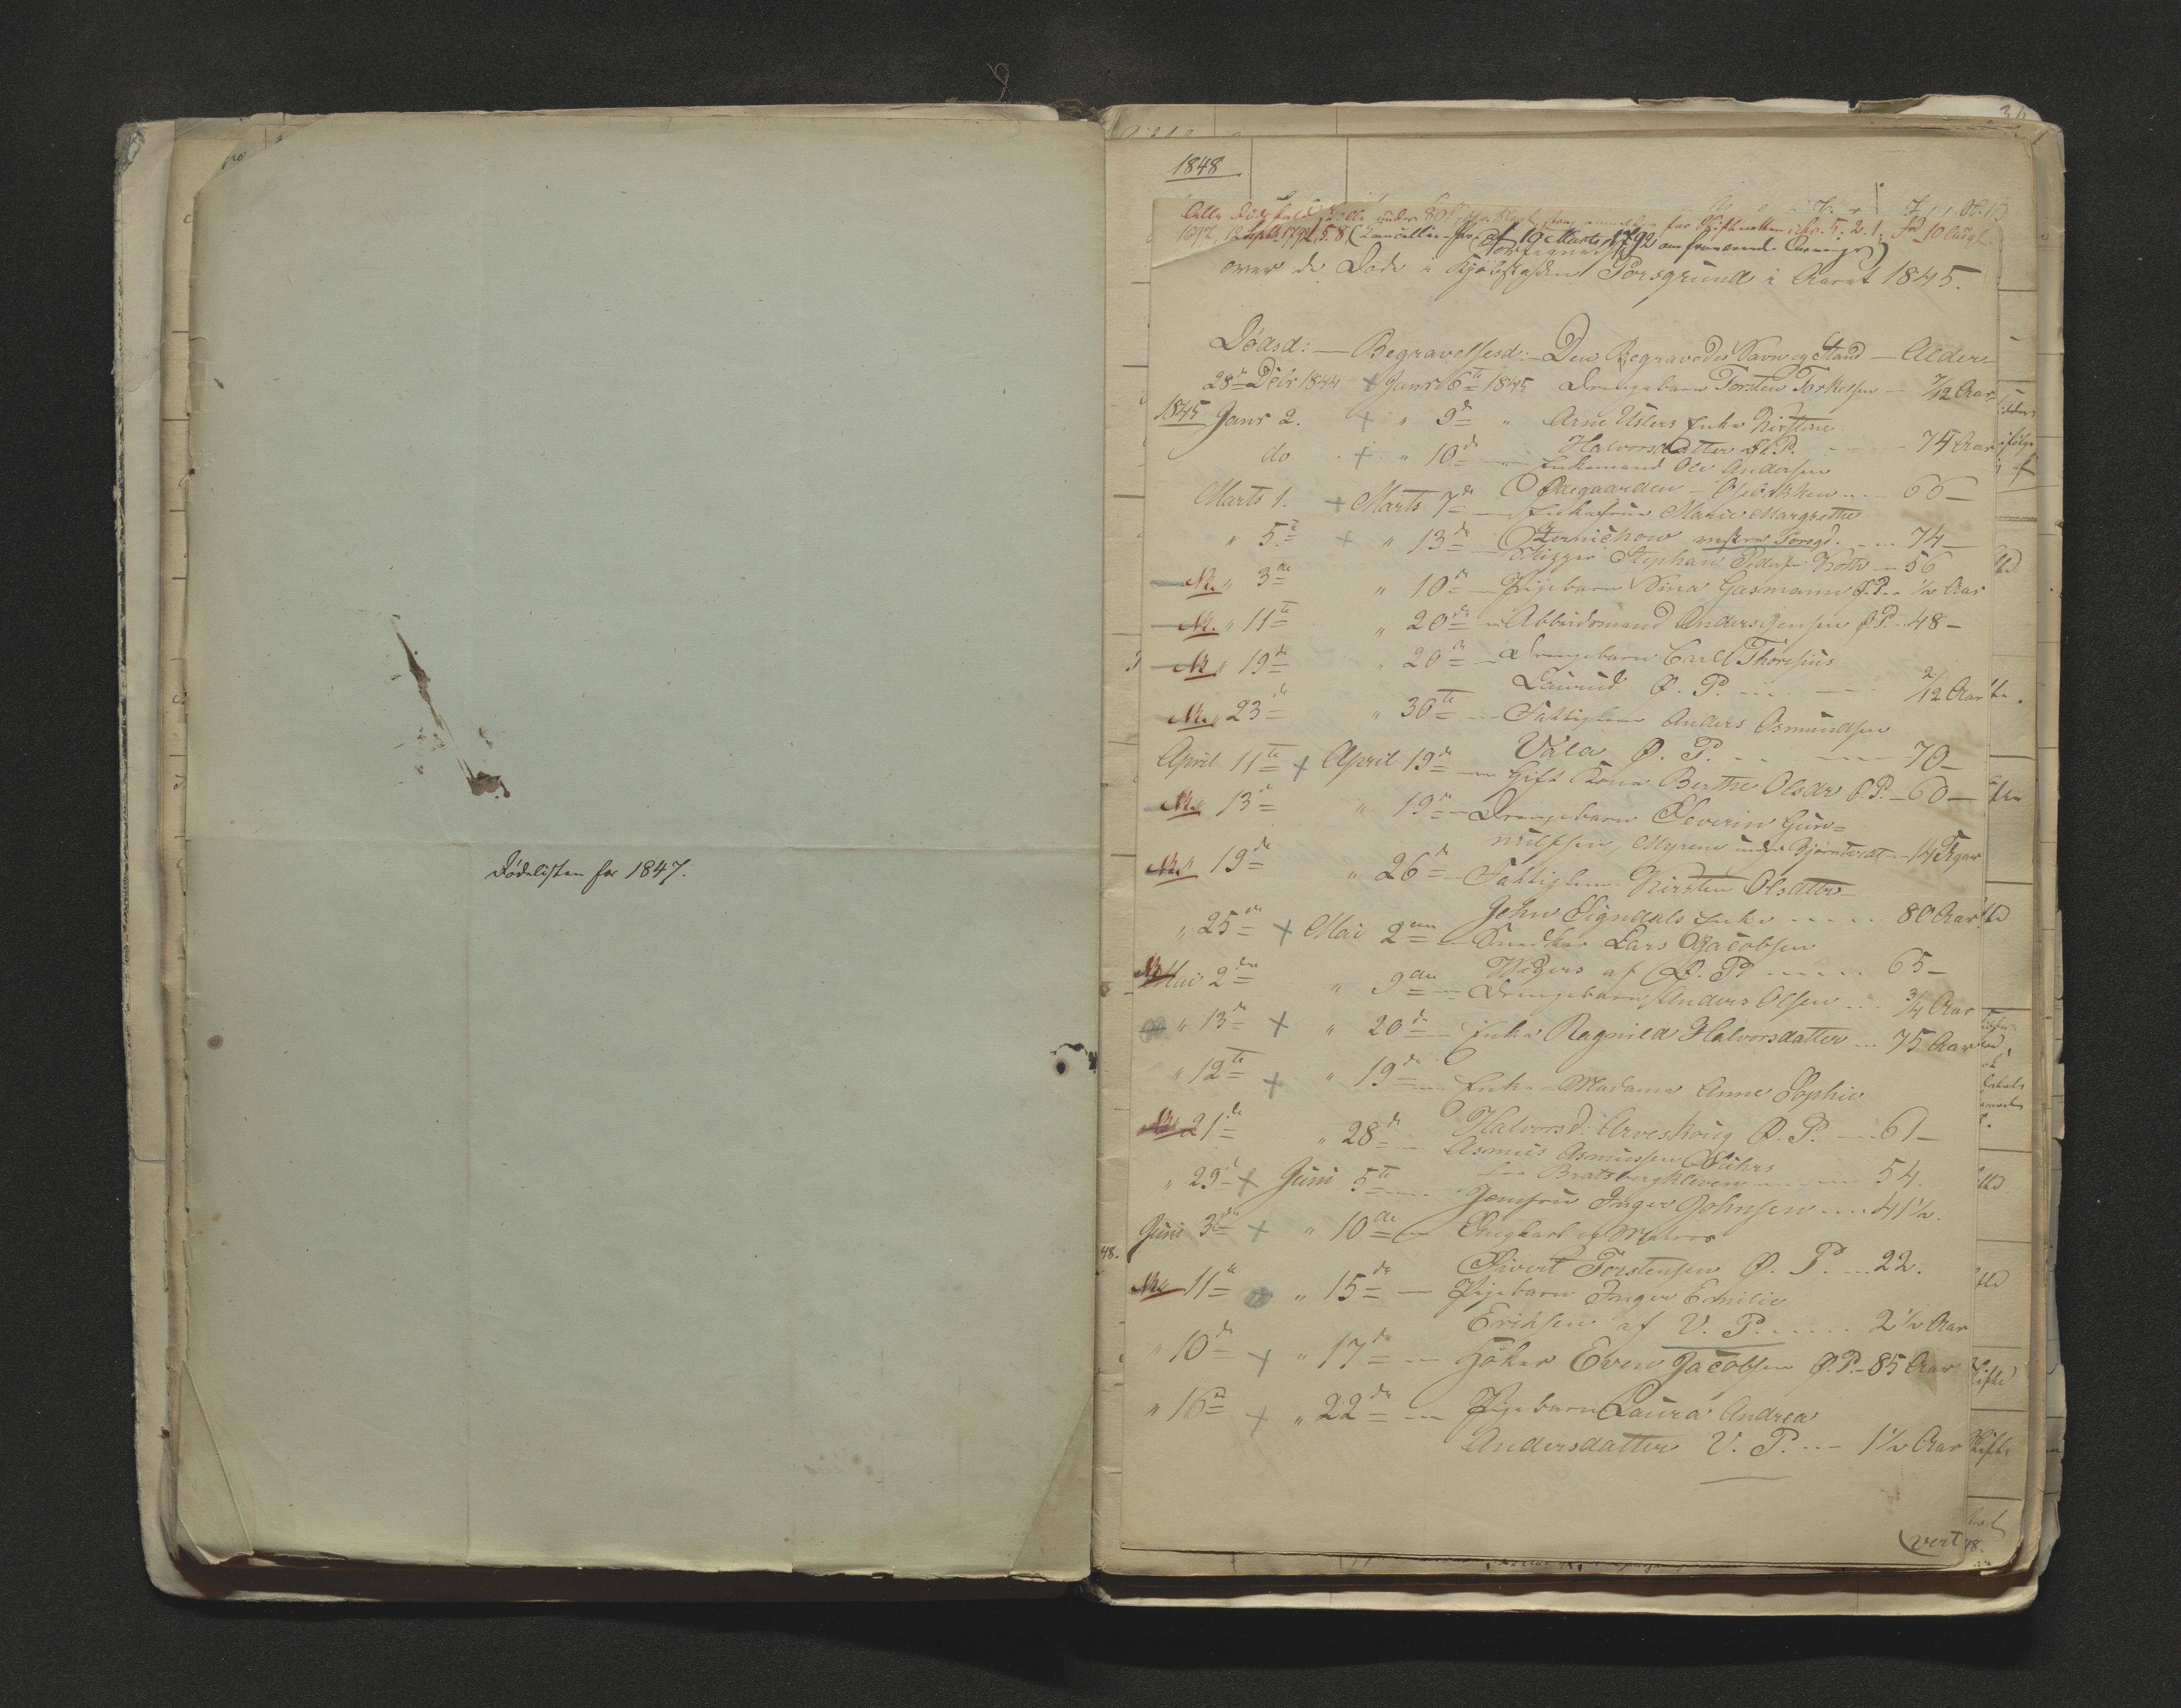 Dødelisten for 1847.
1848
Fortegnelse
over de Døde i Kjøbstaden Porsgrund i Aaret 1845.
Dødsd: — Begravelsesd: — Den Begravedes Navn og Stand — Alder
28de Debr 1844 + Janr 6te 1845 Drengebarn Torsten Torkelsen — 7/12 Aar
1845 Janr 2. + " 9de " Arne Uslers Enke Kirstine
Halvorsdatter Ø.P. 74 Aar
do + " 10de — Enkemand Ole Andersen
Ødegaarden — 66 —
Marts 1. + Marts 7de — Enkefrue Marie Margrethe
Zernichow 74 —
" 5te + " 13de — Skipper Stephan Pedersen — 56
Nk. " 3die " 10de — Pigebarn Sina Gasmann Ø.P. ½ Aar
Nk. " 11te " 20de — Arbeidsmand Anders Jensen Ø.P. — 48 —
Nk " 19de " 26de — Drengebarn Carl Thorsius
Laurud Ø. P. — 2/12 Aar
Nk. " 23de " 30te — Fattiglem Anders Asmundsen
Vala Ø. P. — 70 —
April 11te + April 19de — Gift Kone Berthe Olsdr Ø.P. — 60 —
Nk. " 13de " 19de — Drengebarn Severin Gun=
nulfsen, Myrene under Bjørntvedt — 14 Dage
Nk. " 19de " 26de — Fattiglem Kirsten Olsdatter
John Signdals Enke — 80 Aar
" 25de + Mai 2den — Snedker Lars Jacobsen
af Ø. P. — 65 —
Nk Mai 2den " 9de — Drengebarn Anders Olsen — 3/4 Aar
" 13de + " 20de — Enke Ragnild Halvorsdatter — 75 Aar
" 12te + " 19de — Enke Madame Anne Sophie
Halvorsd: Arveskoug Ø. P. — 61 —
Nk. 21de " 28de — Asmus Asmussen Suhrs
fra Bratsbergkleven — 54.
" 29de + Juni 5te — Jomfru Inger Johnsen — 41½.
Juni 3die + " 10de — Ungkarl og Matros
Sivert Torstensen Ø. P. — 22.
Nk. 11te " 15de — Pigebarn Inger Emilie
Eriksen af V. P. — 2½ Aar
" 10de + " 17de — Høker Even Jacobsen Ø.P. — 85 Aar
" 16de + " 22de — Pigebarn Laura Andrea
Andersdatter V. P. — 1½ Aar
vert